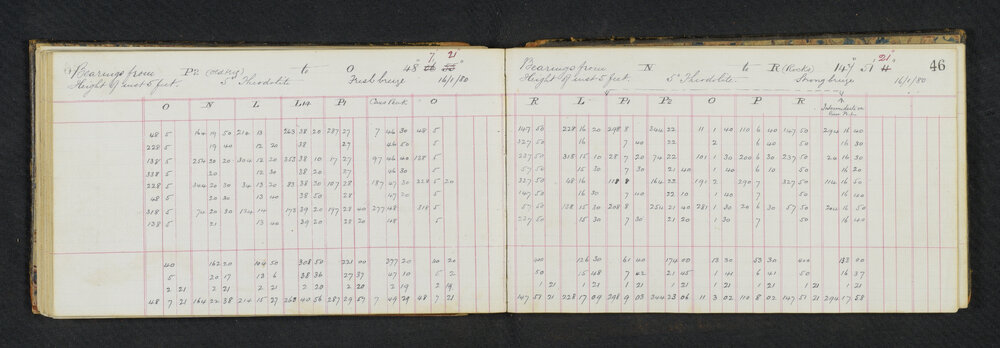 Bearings from P2 (Old Peg) to O 48° 7' 21"
Height of inst 5 feet. 5" Theodolite Fresh breeze 16/1/80
O N L L14 P1 O
48 5 164 19 50 214 13 263 38 20 287 27 7 46 30 48 5
228 5 19 40 12 20 38 27 46 50 5
138 5 254 20 20 304 12 20 353 38 10 17 27 97 46 40 138 5
338 5 20 12 30 38 20 27 46 30 5
228 5 344 20 30 34 13 20 83 38 30 107 28 187 47 30 228 5 20
48 5 20 30 13 40 38 50 28 47 20 5
318 5 74 20 30 124 14 173 39 20 197 28 40 277 48 318 5
138 5 21 13 40 39 20 28 20 48 5
40 162 20 308 50 221 00 377 20 40 20
5 20 17 13 6 38 36 27 37 47 10 5 2
2 21 2 21 2 21 2 20 2 20 2 19 2 19
48 7 21 164 22 38 214 15 27 263 40 56 287 29 57 7 49 29 48 7 21
Bearings from N to R (Rocks) 147° 51' 21"
46
Height of inst 5 feet. 5" Theodolite Strong breeze 16/1/80
R L P1 P2 O P R
147 50 228 16 20 298 8 344 22 11 1 40 110 6 40 147 50 294 16 40
327 50 16 7 40 22 2 6 40 50 16 30
237 50 318 15 10 28 7 20 74 22 101 1 30 200 6 30 237 50 24 16 30
57 50 15 30 7 30 21 40 1 40 6 10 50 16 20
327 50 48 16 118 8 164 22 191 2 290 7 327 50 114 16 50
147 50 16 30 7 40 22 10 1 40 7 50 16 40
57 50 128 15 30 208 8 254 21 40 281 1 30 20 6 30 57 50 204 16 50
237 50 15 30 7 30 21 20 1 30 7 50 16 40
400 126 30 61 40 174 00 13 30 53 30 400 133 00
50 15 48 7 42 21 45 1 41 6 41 50 16 37
1 21 1 21 1 21 1 21 1 21 1 21 1 21 1 21
147 51 21 228 17 09 298 9 03 344 23 06 11 3 02 110 8 02 147 51 21 294 17 58